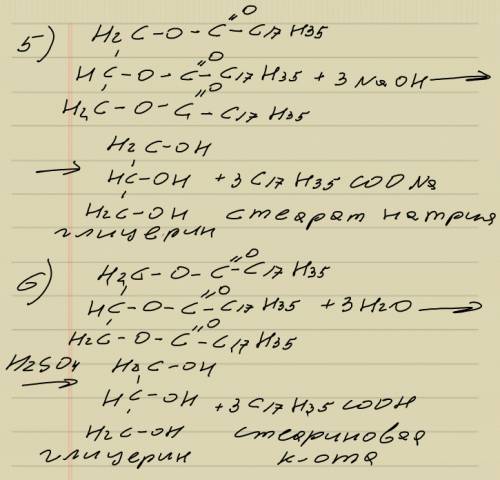 5) H2C-O-C=O-C17H35
HC-O-C=O-C17H35 + 3NaOH →
H2C-O-C=O-C17H35
H2C-OH
→ HC-OH + 3C17H35COONa
H2C-OH стеарат натрия
глицерин
6) H2C-O-C=O-C17H35
HC-O-C=O-C17H35 + 3H2O →
H2C-O-C=O-C17H35
H2SO4 → H2C-OH
HC-OH + 3C17H35COOH
H2C-OH стеариновая
глицерин к-ота